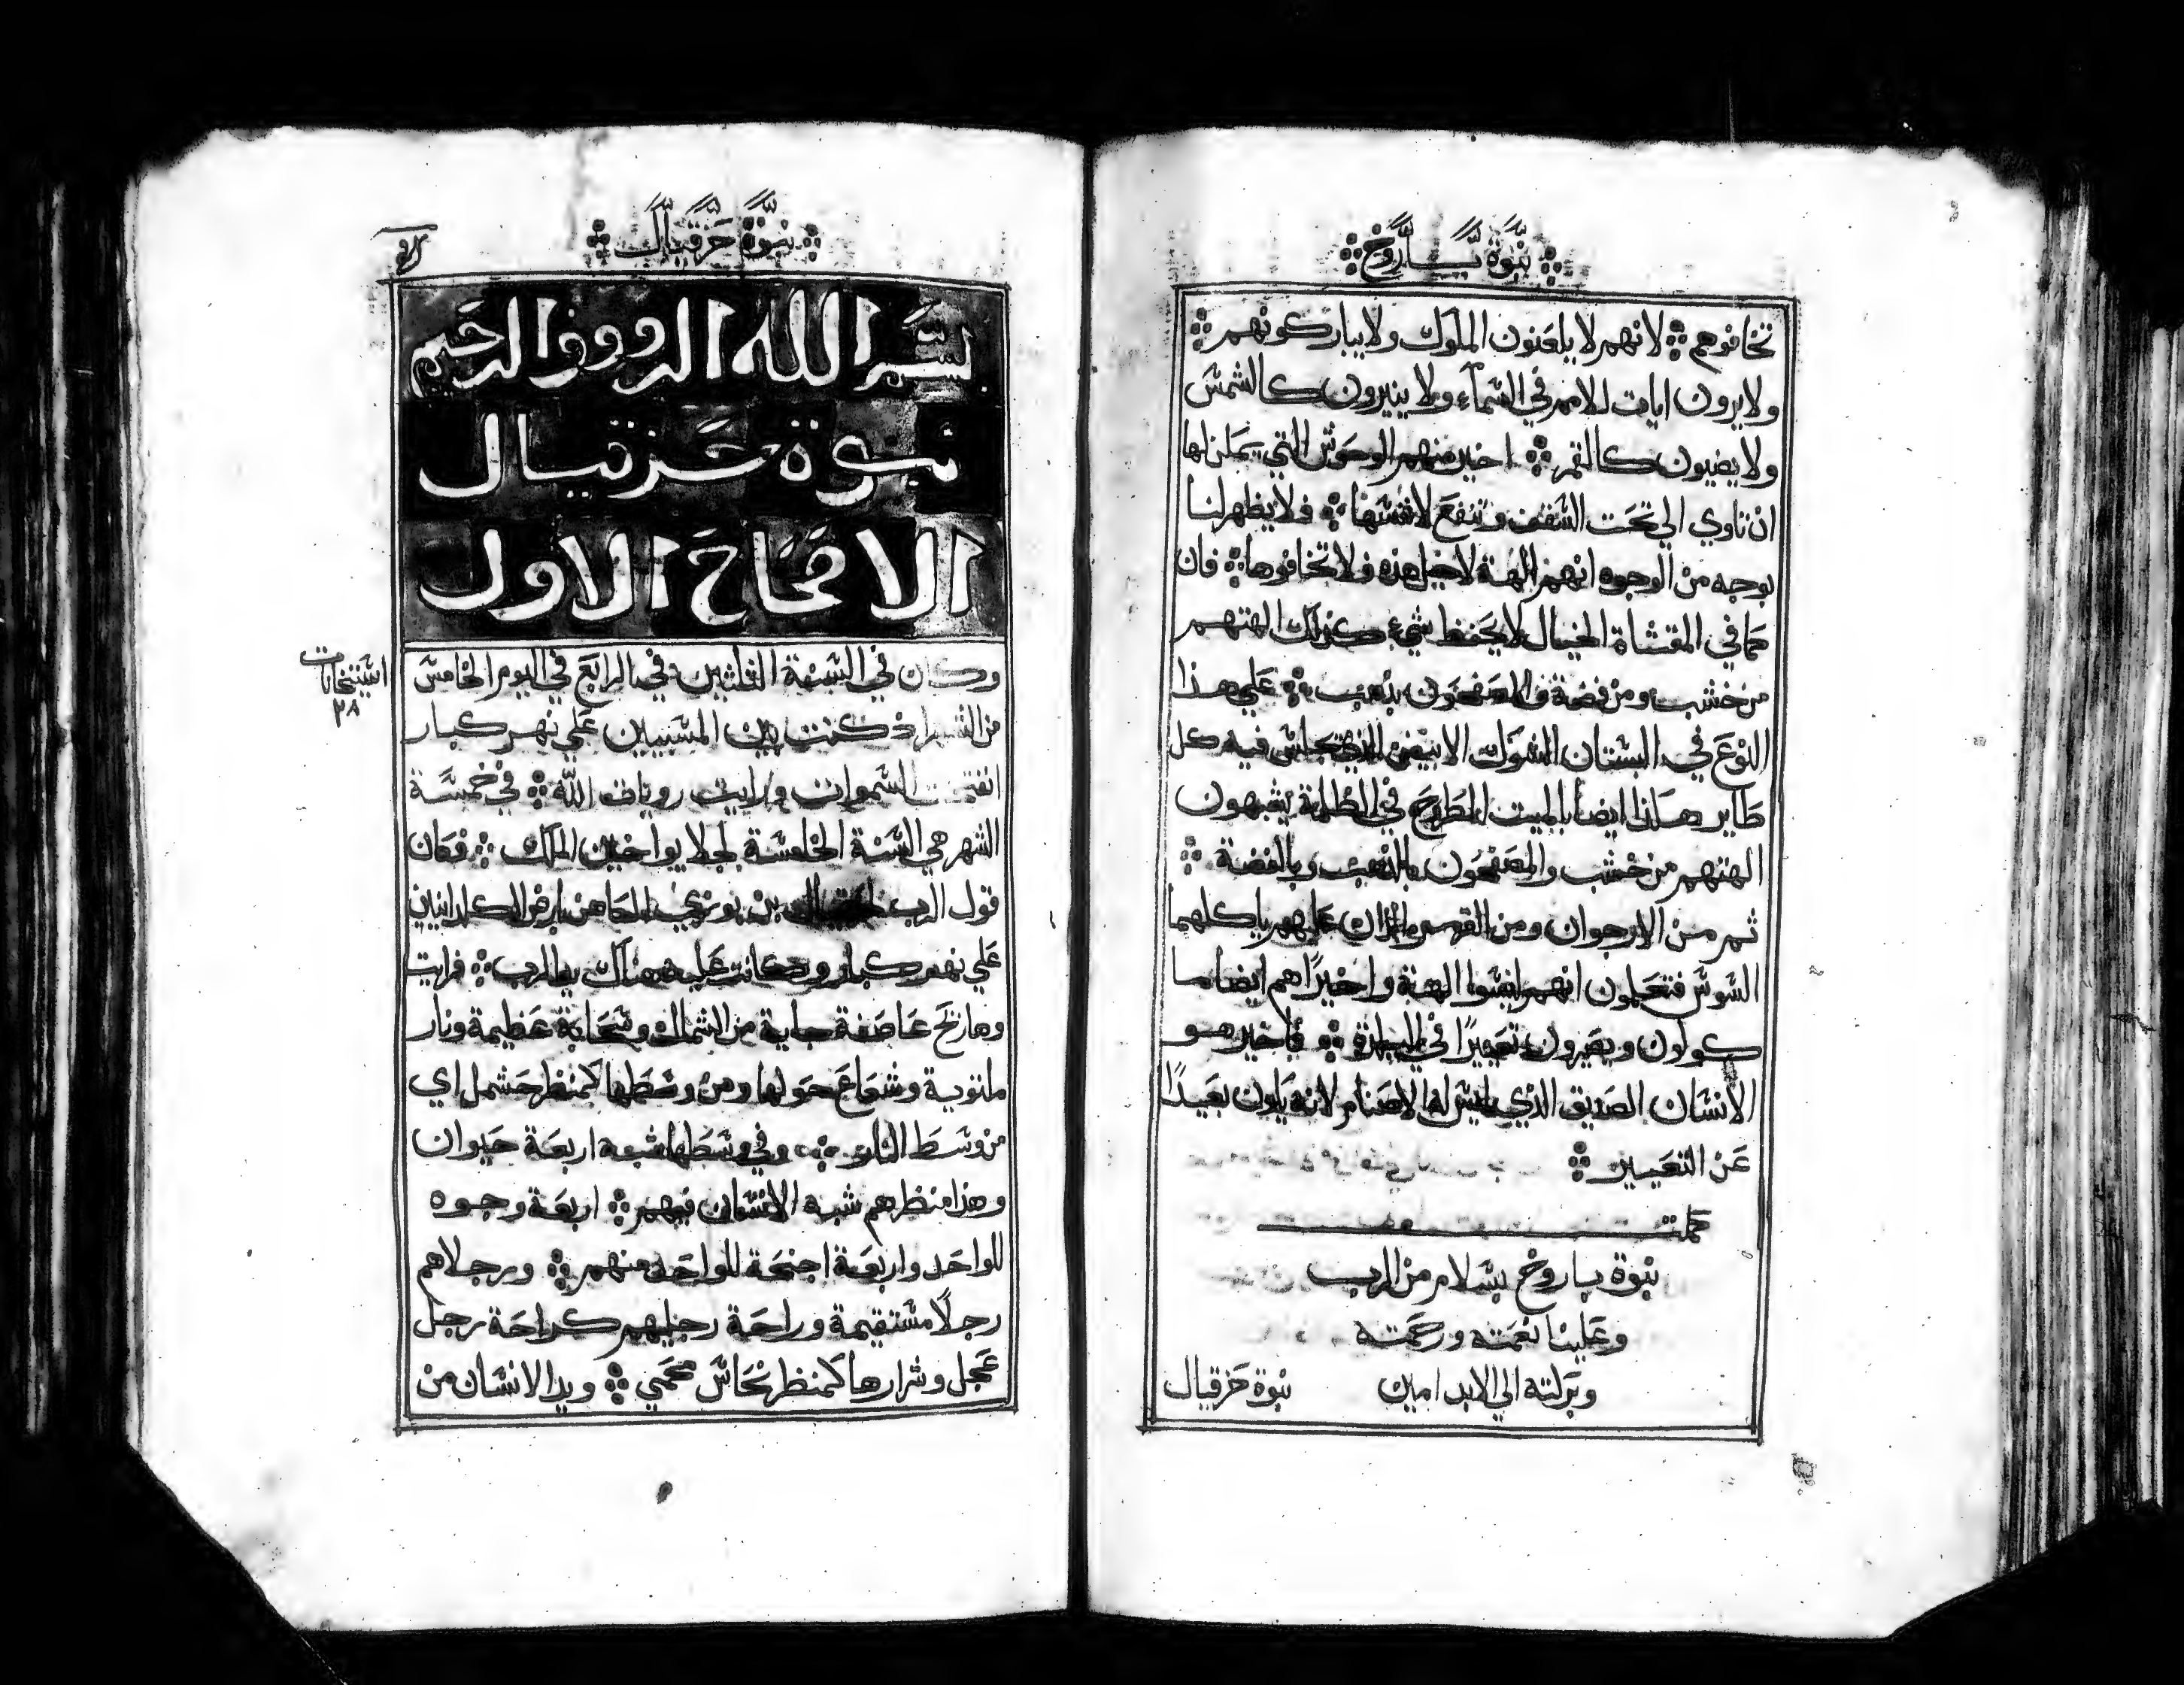 نبوة باروخ
تخافوهم لانهم لا يلعنون الملوك ولا يباركونهم
ولا يرون ايات للامم في السماء ولا ينيرون كالشمس
ولا يضيون كالقمر اخير منهم الوحوش التي يمكن لها
ان تاوي الي تحت السقف وتنفع لانفسها فلا يظهر لنا
بوجه من الوجوه انهم الهة لاجل هذه فلا تخافوها فان
كما في المقثاة الخيال لا يحفظ شيء كذلك الهتهم
من خشب ومن فضة والمصفحون بذهب علي هذا
النوع في البستان الشوك الابيض الذي يجلس فيه كل
طاير هكذا ايضا بالميت المطروح في الظلمة يشبهون
الهتهم من خشب والمصفحون بالذهب وبالفضة
ثم من الارجوان ومن القرمز الذان عليهم ياكلهما
السوس فتعلمون انهم ليسوا الهة واخيرًا هم ايضا ما
كولون ويصيرون تعييرًا في البلدة فاخير هو
الانسان الصديق الذي ليس له الاصنام لانه يكون بعيدًا
عن التعيير
كملت
نبوة باروخ بسلام من الرب
وعلينا نعمته ورحمته
وبركته الي الابد امين
نبوة حزقيال
نبوة حزقيال
بسم الله الرووف الرحيم
نبوة حزقيال
الاصحاح الاول
وكان في السنة الثلثين في الرابع في اليوم الخامس
من الشهر اذ كنت بين المسبيين علي نهر كبار
انفتحت السموات ورايت رويات الله في خمسة
الشهر هي السنة الخامسة لجلا يواخين الملك فكان
قول الرب بن بوزي الكاهن بارض الكلدانيين
علي نهر كبار وكانت عليه هناك يد الرب فرايت
وها ريح عاصفة جاية من الشمال وسحابة عظيمة ونار
ملتوية وشعاع حولها ومن وسطها كمنظر حشمل اي
من وسط النار وفي وسطها شبه اربعة حيوان
وهذا منظرهم شبه الانسان فيهم اربعة وجوه
للواحد واربعة اجنحة للواحد منهم ورجلاهم
رجلًا مستقيمة وراحة رجليهم كراحة رجل
عجل وشرارها كمنظر نحاس محمي ويد الانسان من
٢٨